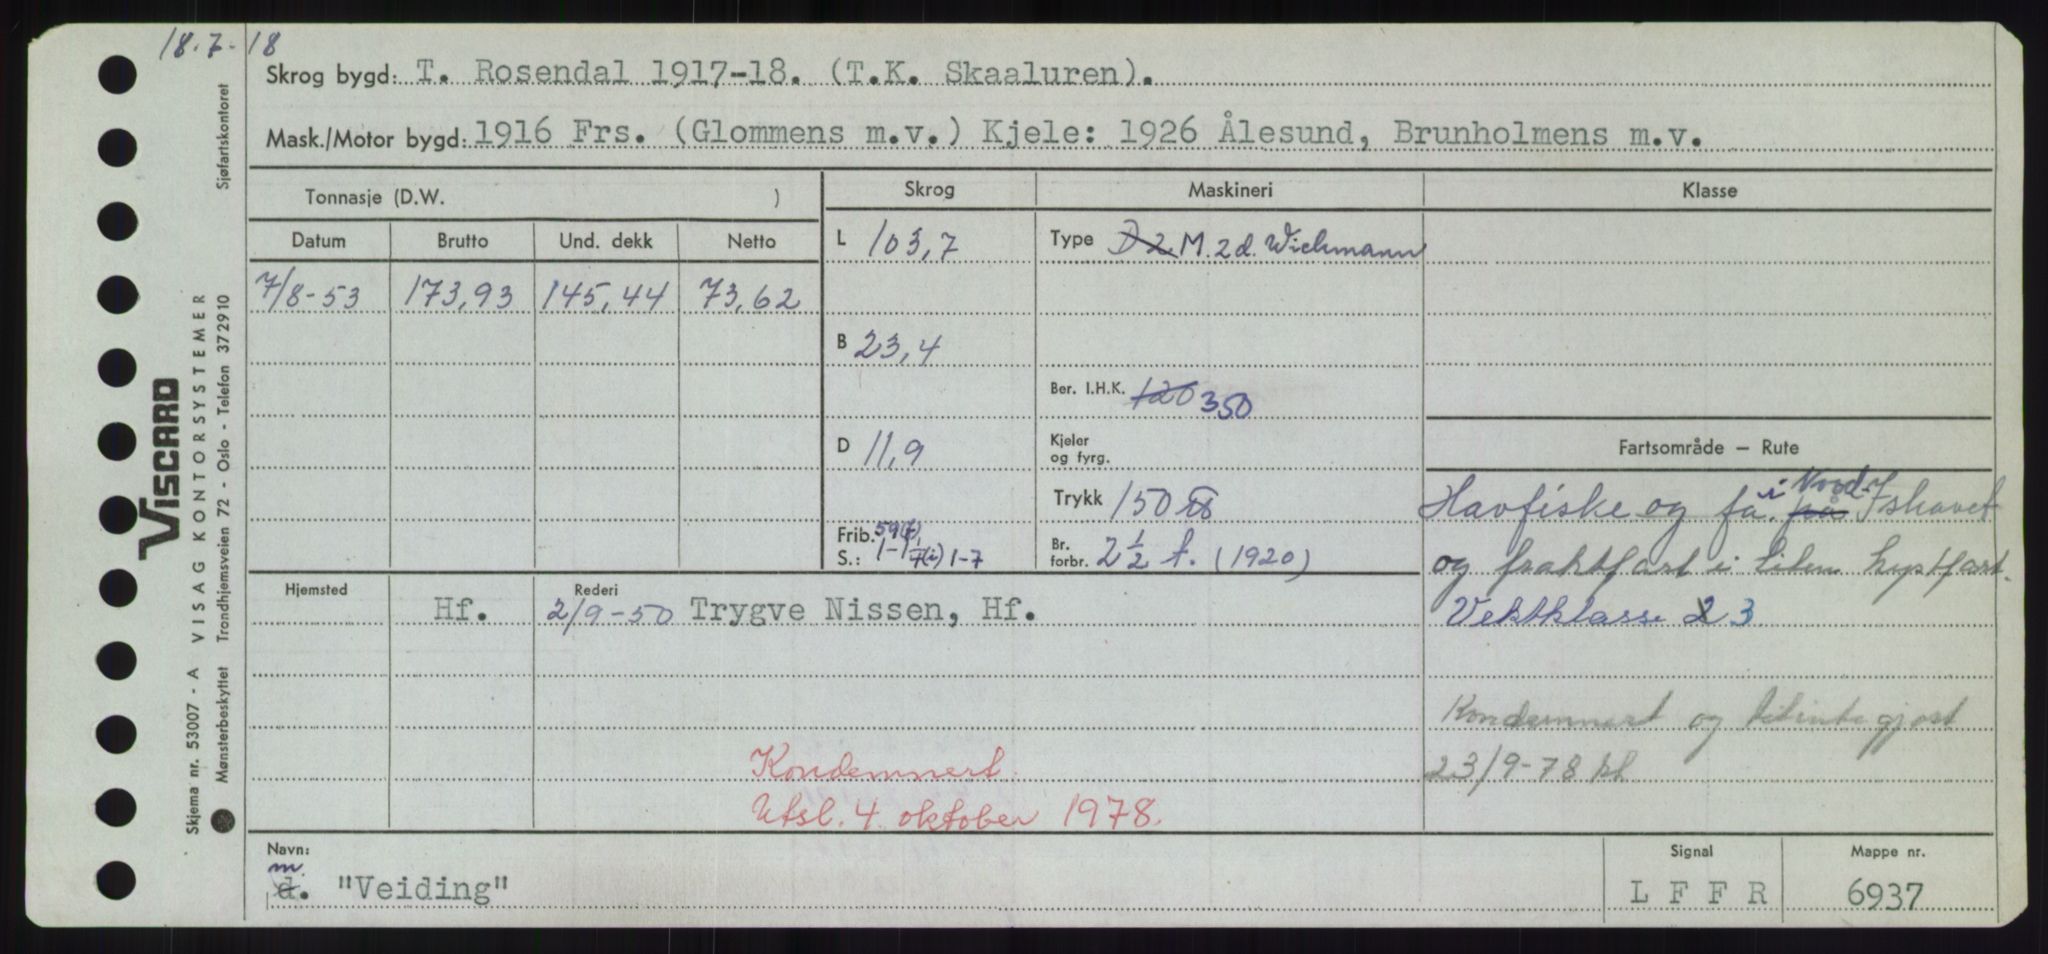 18.7.18
Skrog bygd: T. Rosendal 1917-18. (T.K. Skaaluren).
Mask./Motor bygd: 1916 Frs. (Glommens m.v.) Kjele: 1926 Ålesund, Brunholmens m.v.
Tonnasje (D.W. )
Skrog
Maskineri
Klasse
Datum Brutto Und. dekk Netto
7/8-53 173,93 145,44 73,62
L 103,7
B 23,4
D 11,9
Frib. S.: 1-1 7(i) 1-7
Type D 2 M. 2 d. Wichmann
Ber. I.H.K. 120 350
Kjeler og fyrg.
Trykk 150 lb
Br. forbr. 2 1/2 t. (1920)
Fartsområde — Rute
Nord-
Havfiske og få. i på Ishavet
og fraktfart i liten kystfart.
Vektklasse 2 3
Kondemnert og tilintegjort
23/9-78
Hjemsted Rederi
Hf. 2/9-50 Trygve Nissen, Hf.
Kondemnert.
Utsl. 4. oktober 1978.
Navn:
m
d. "Veiding"
Signal
L F F R
Mappe nr.
6937
Sjøfartskontoret
VISCARD
VISAG KONTORSYSTEMER
Trondhjemsveien 72 - Oslo - Telefon 372910
Skjema nr. 53007 - A
Mønsterbeskyttet